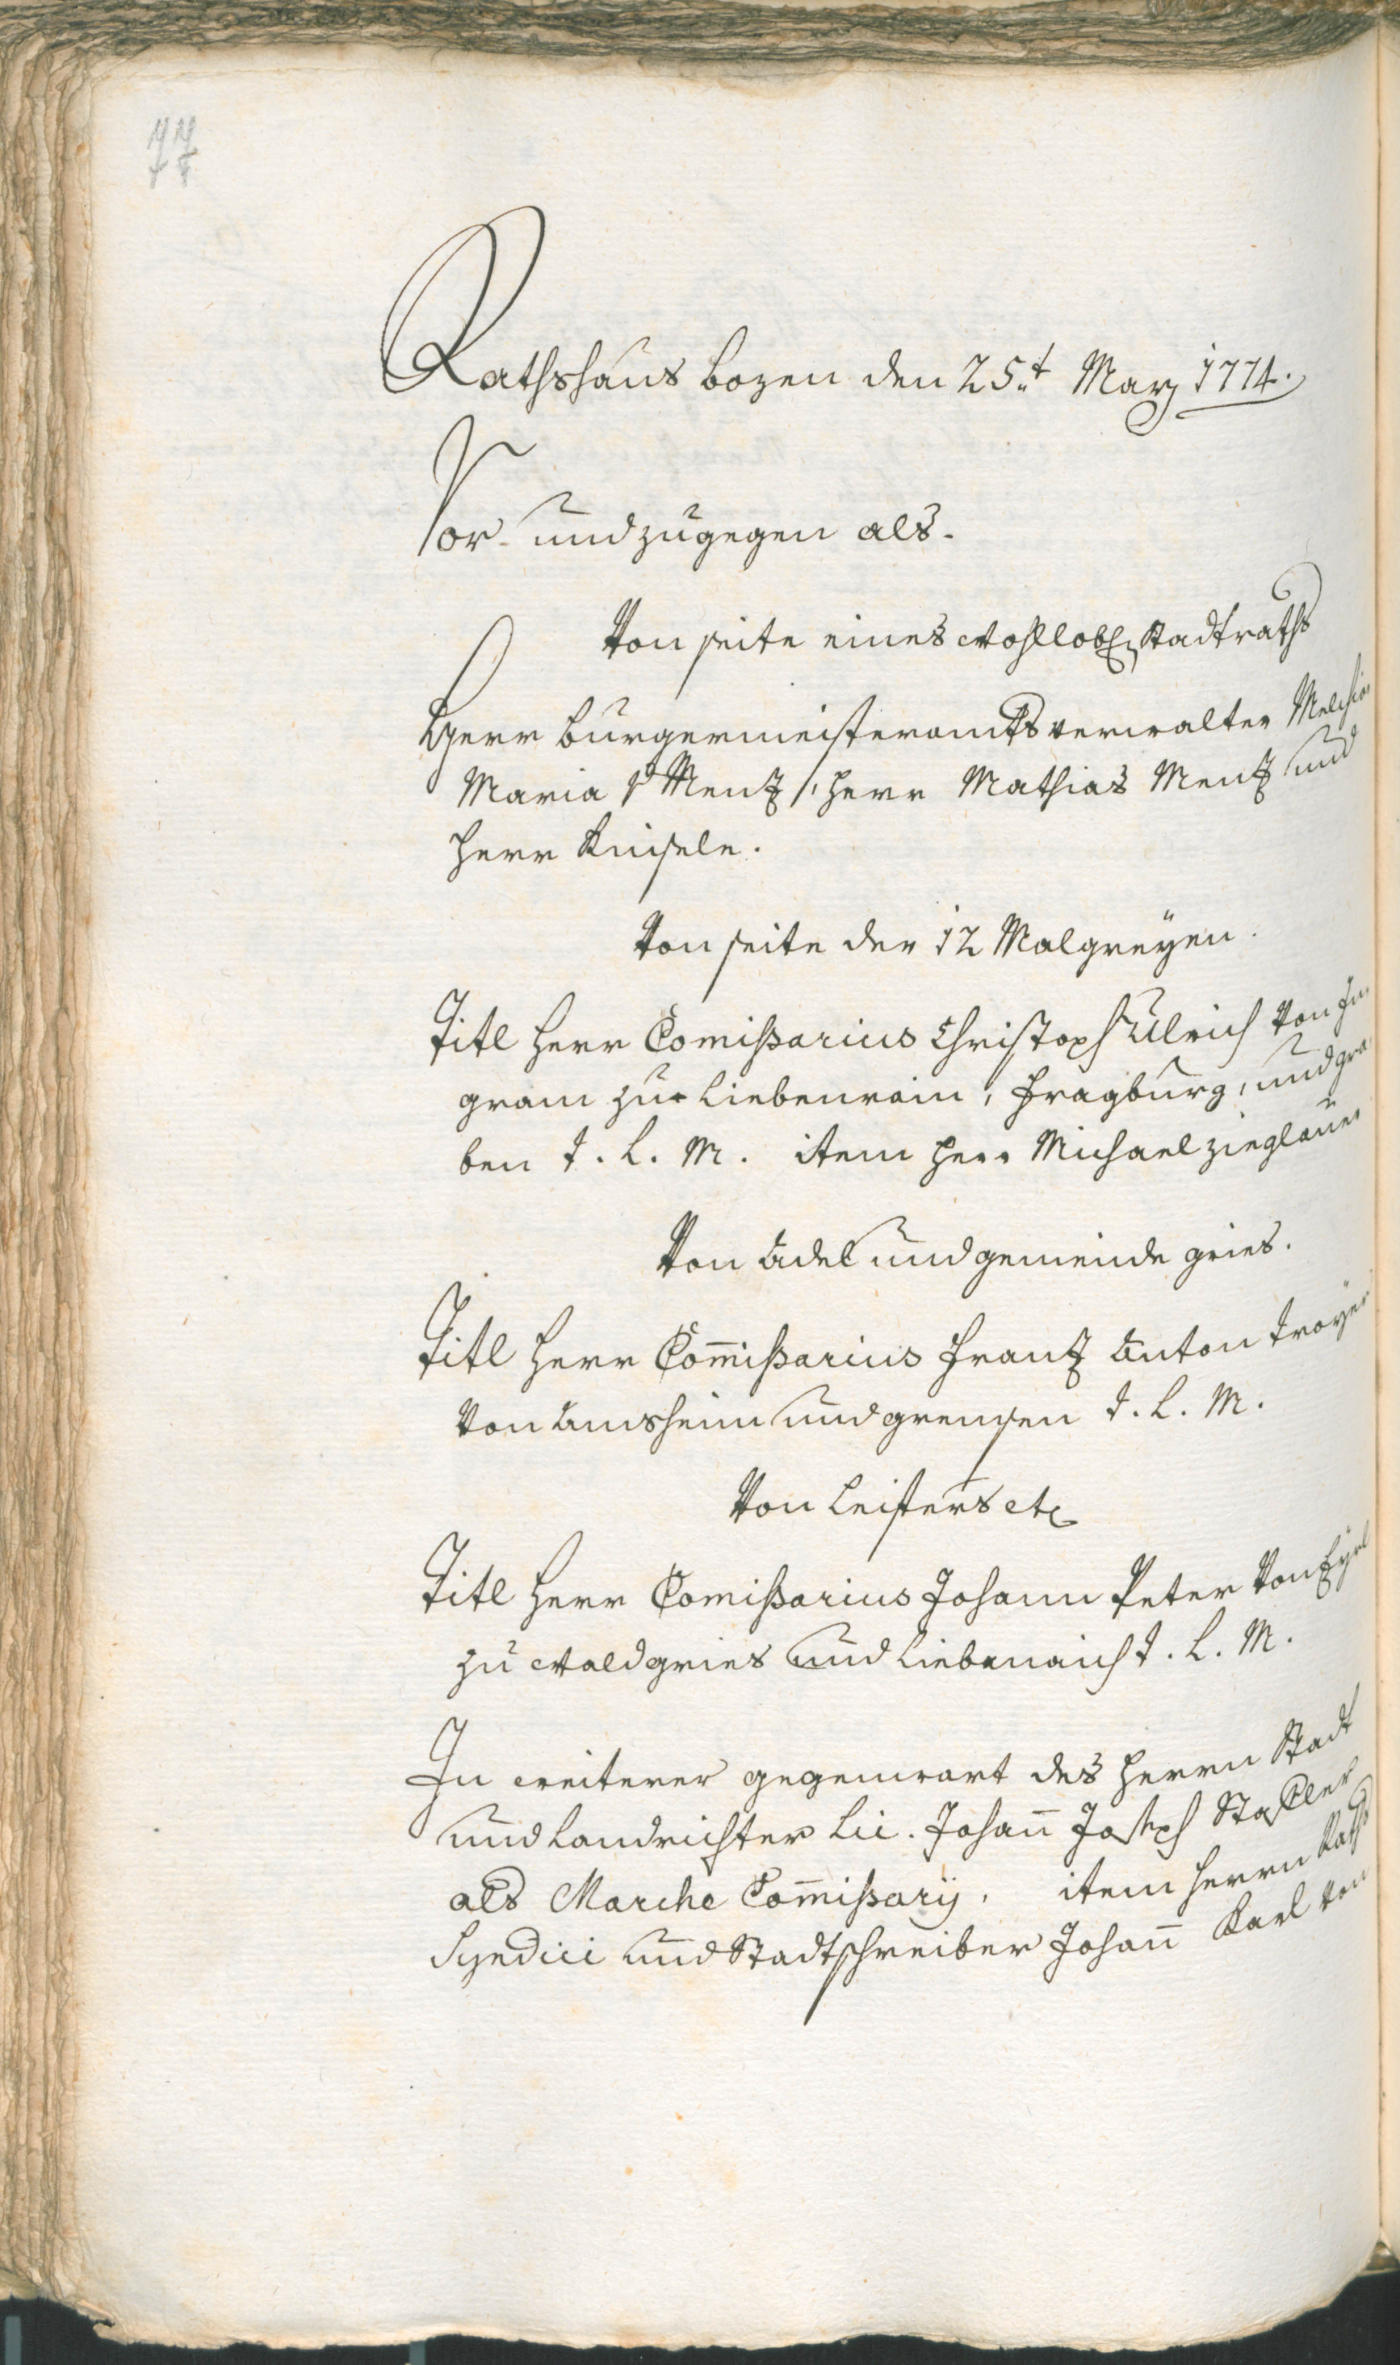 Rathshaus Bozen den 25.t Marz 1774.
Vor- und zugegen als.
Von seite eines wohllobl. Stadtraths
Herr Burgermeisteramts verwalter Melchior
Maria v Menz, Herr Mathias Menz und
Herr Kniesele.
Von seite der 12 Malgreyen.
Titl Herr Comißarius Christoph Ulrich von In
gram zu Liebenrain, Fragburg, und gra
ben T. L. M. item Herr Michael Zieglauer
Von Adel und gemeinde gries.
Titl Herr Com̄ißarius Frantz Anton Troyer
von Aufheim und grensen T. L. M.
Von Leifers etc
Titl Herr Comißarius Johann Peter von Eyrl
zu Waldgries und Liebenaich T. L. M.
In weiterer gegenwart des Herrn Stadt
und Landrichter Lic. Johan̄ Joseph Stapler
als Marche Com̄ißarij. item Herrn Raths
Syndici und Stadtschreiber Johan̄ Karl von